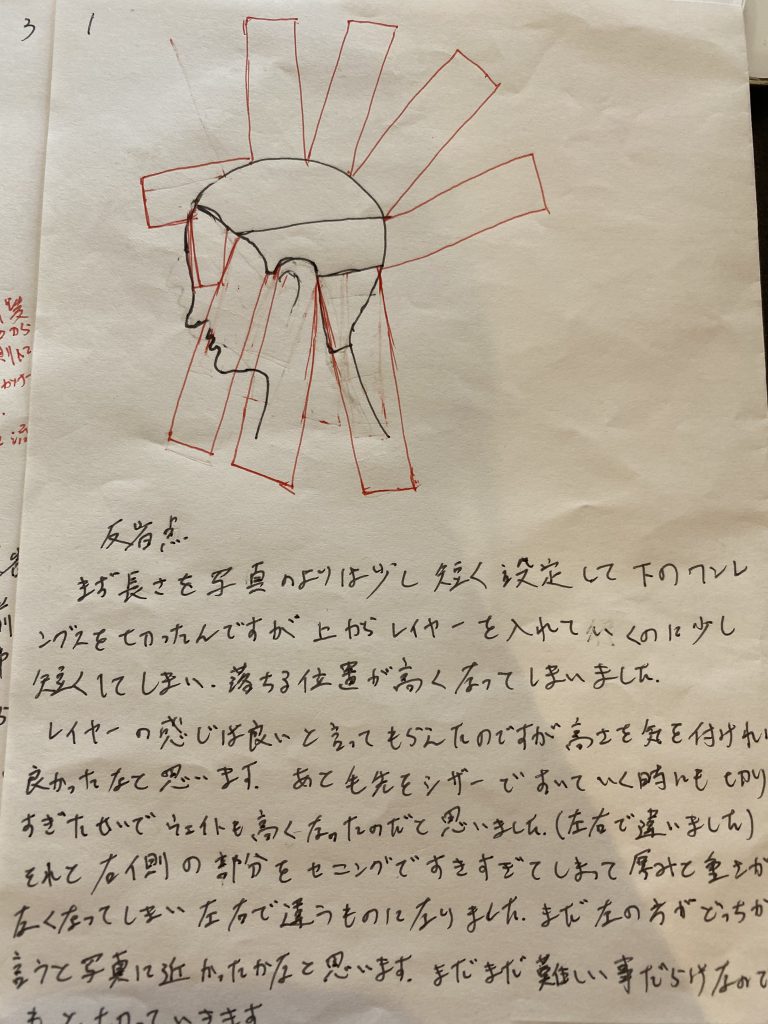 3 1
髪
から
反省点
まず長さを写真のよりは少し短く設定して下のワンレ
ングスを切ったんですが上からレイヤーを入れていくのに少し
短くしてしまい、落ちる位置が高くなってしまいました。
レイヤーの感じは良いと言ってもらえたのですが高さを気を付けれ
良かったなと思います。あと毛先をシザーですいていく時にも切り
すぎたせいでウェイトも高くなったのだと思いました。(左右で違いました)
それと右側の部分をセニングですきすぎてしまって厚みと重さが
なくなってしまい左右で違うものになりました。まだ左の方がどっちか
言うと写真に近かったかなと思います。まだまだ難しい事だらけなので
もと切っていきます